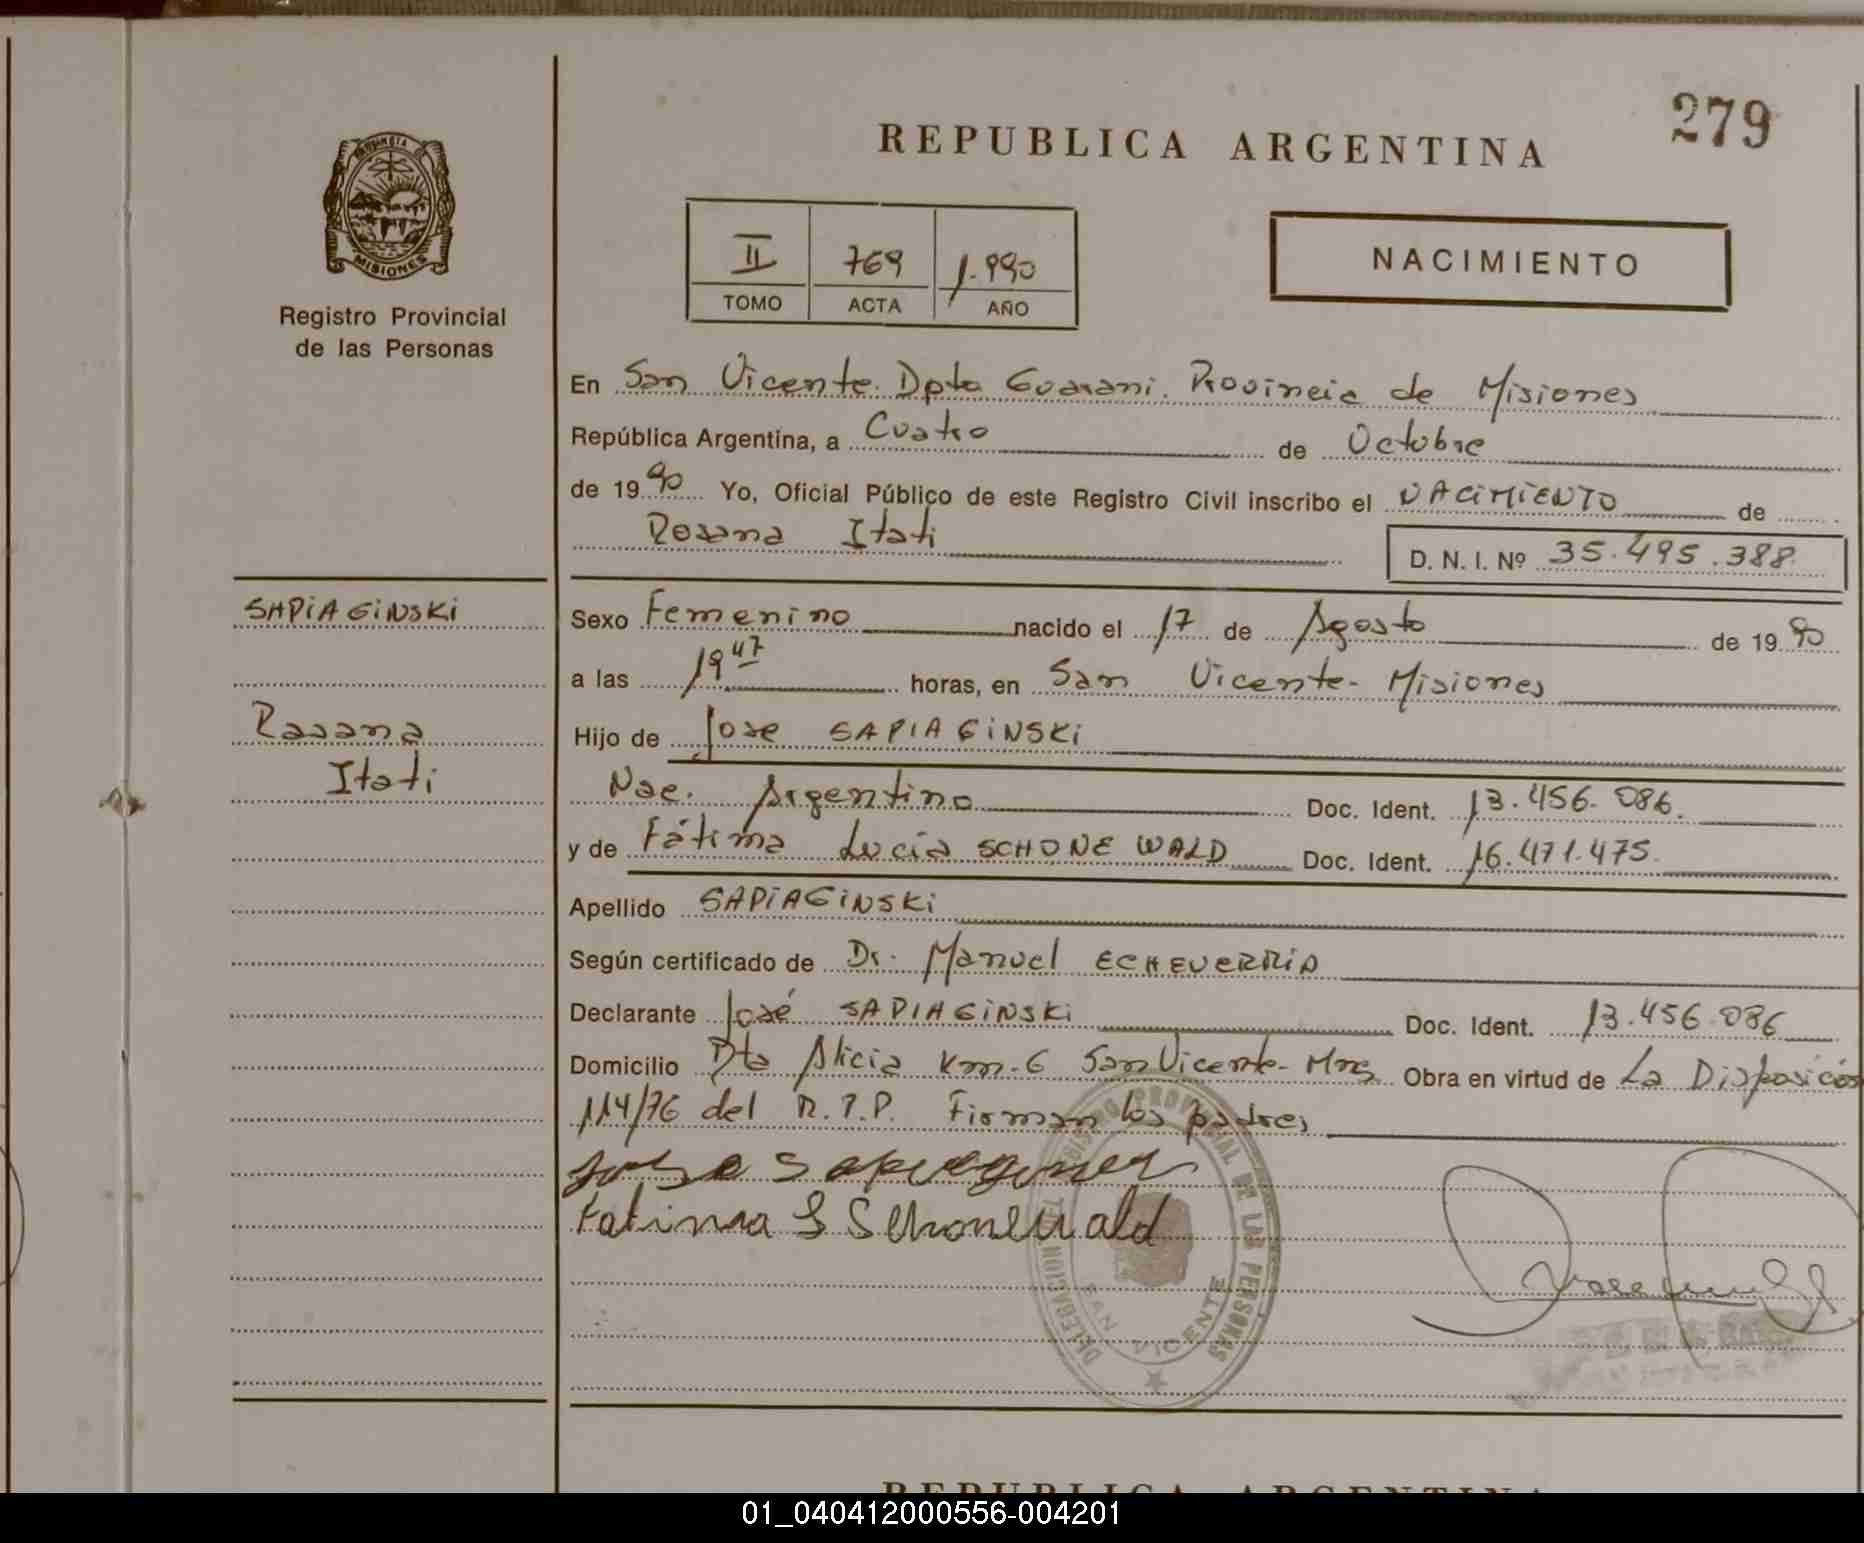 279
REPUBLICA ARGENTINA
PROVINCIA DE
MISIONES
Registro Provincial
de las Personas
II 769 1.990
TOMO ACTA AÑO
NACIMIENTO
En San Vicente. Dpto Guarani. Provincia de Misiones
República Argentina, a Cuatro de Octubre
de 1990 Yo, Oficial Público de este Registro Civil inscribo el NACIMIENTO de
Rosana Itati
D. N. I. Nº 35.495.388
SAPIAGINSKI
Rosana
Itati
Sexo Femenino nacido el 17 de Agosto de 1990
a las 19 47 horas, en San Vicente - Misiones
Hijo de Jose SAPIAGINSKI
Nac. Argentino Doc. Ident. 13.456.086.
y de Fátima Lucia SCHONEWALD Doc. Ident. 16.471.475.
Apellido SAPIAGINSKI
Según certificado de Dr. Manuel ECHEVERRIA
Declarante José SAPIAGINSKI Doc. Ident. 13.456.086
Domicilio Pto Alicia Km-6 San Vicente - Mnes Obra en virtud de La Disposición
114/76 del R.P.P. Firman los padres
Fatima L Schonewald
DELEGACION DEL REGISTRO PROVINCIAL DE LAS PERSONAS
SAN VICENTE
REPUBLICA ARGENTINA
01_040412000556-004201